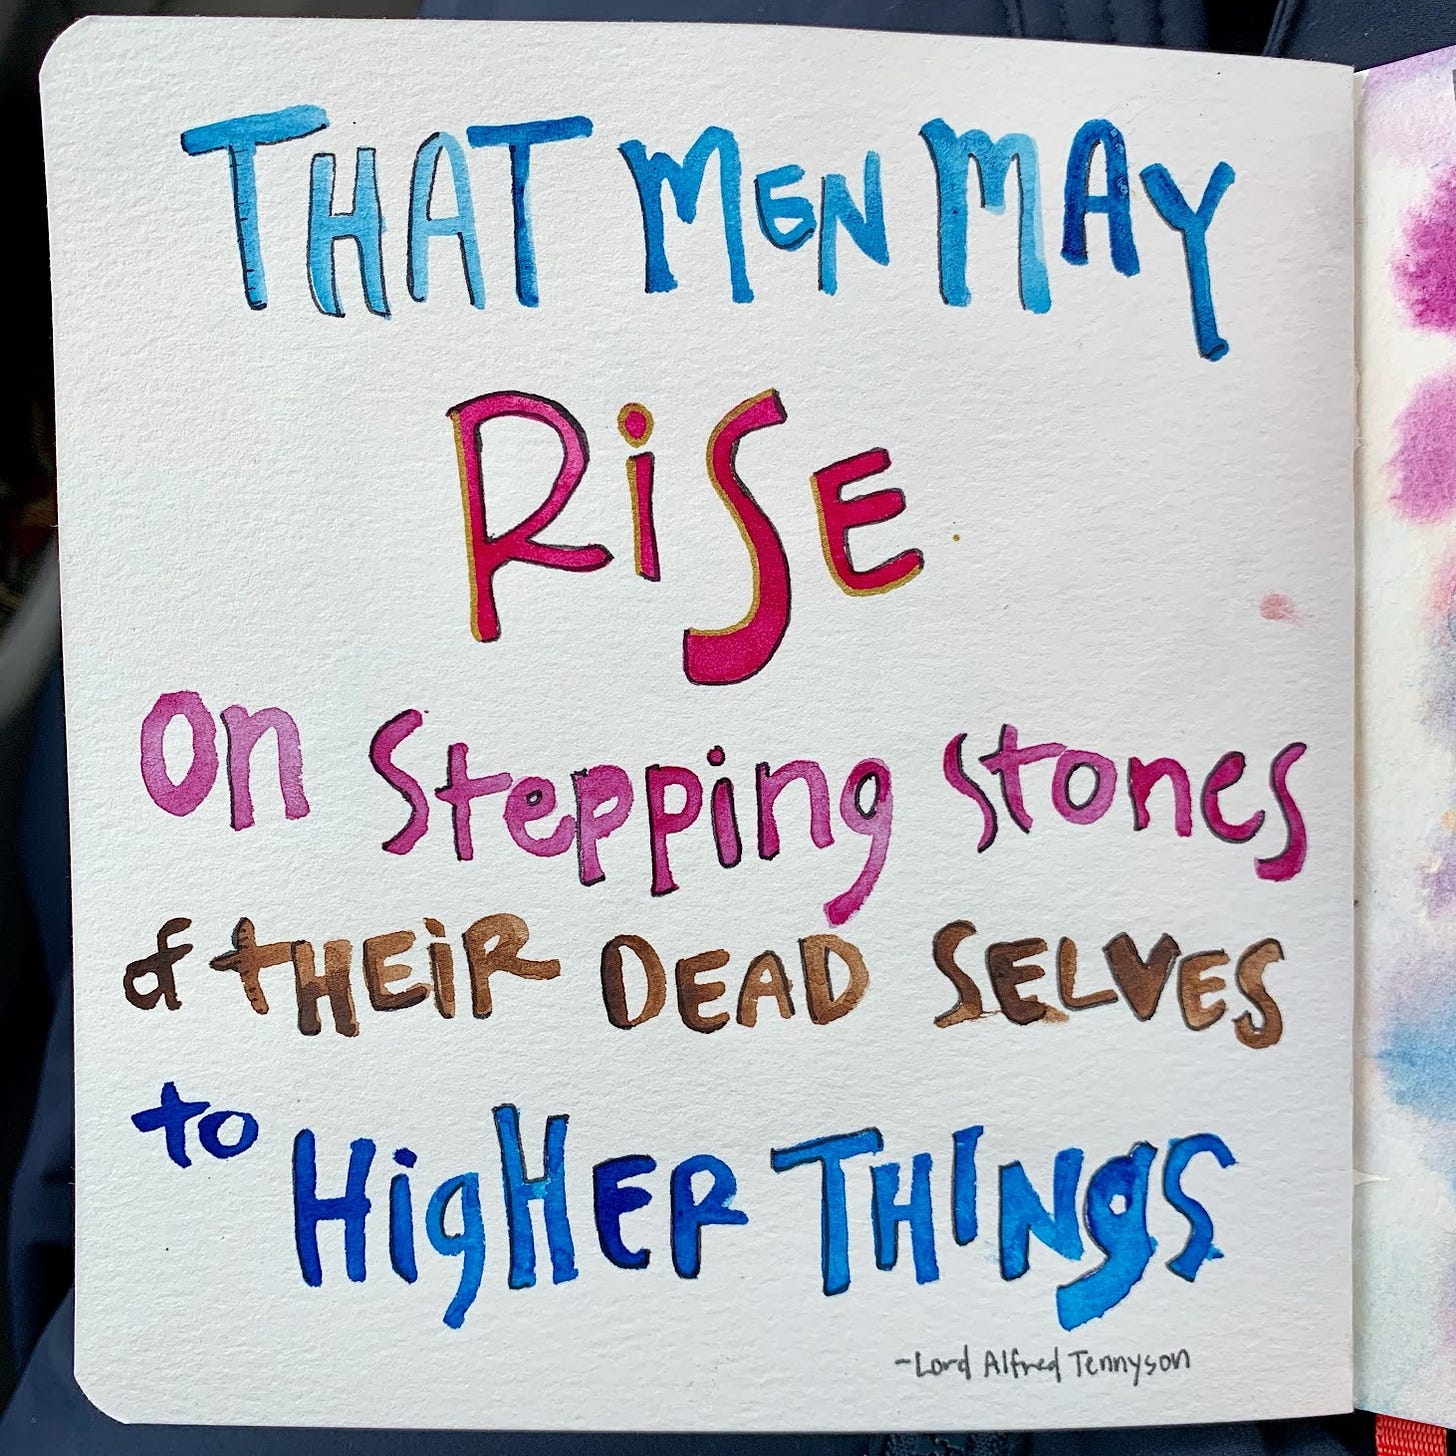 THAT MEN MAY
RiSE
on Stepping Stones
of tHEiR DEAD SELVES
to HigHER THINgS
-Lord Alfred Tennyson